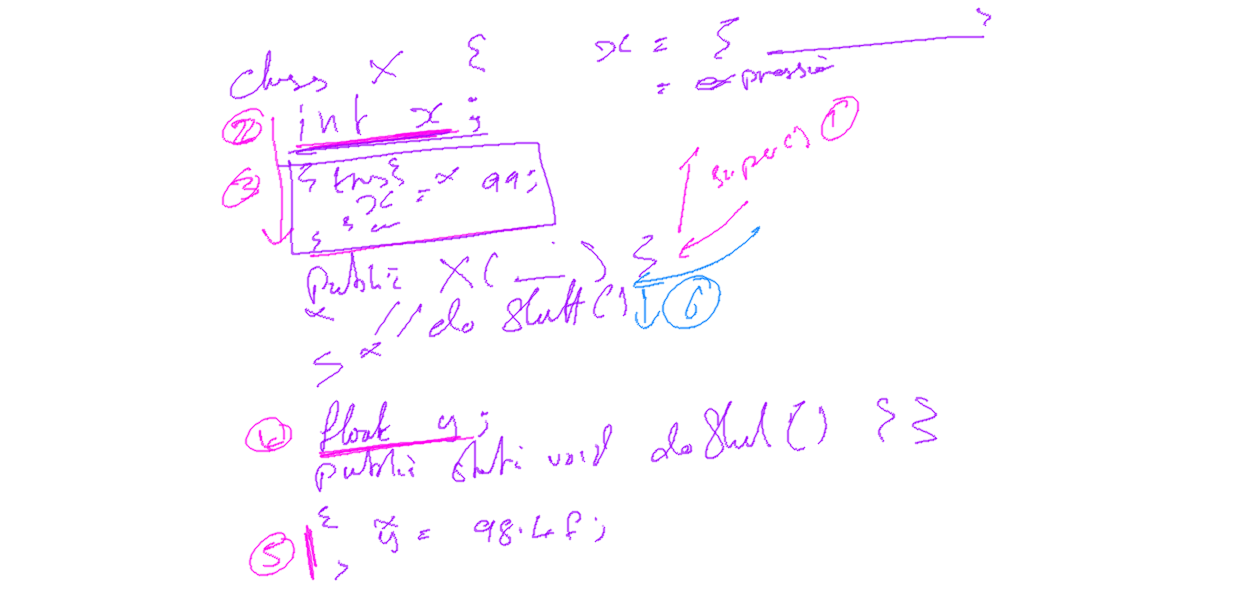 class X {
x = { }
= expression
② int x;
③ { x = 99;
super() ①
public X( ) {
// do Stuff() ⑥
}
④ float y;
public static void doStuf() { }
{
⑤ y = 98.4f;
}